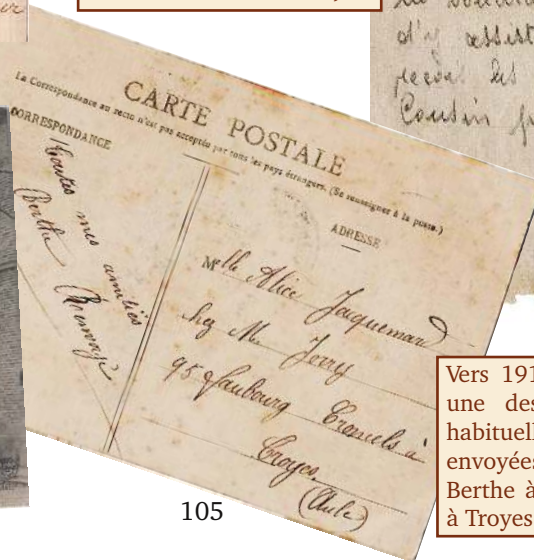 en souvenir
d'y assist
Cousin
CARTE POSTALE
La Correspondance au recto n'est pas acceptée par tous les pays étrangers. (Se renseigner à la poste.)
CORRESPONDANCE
ADRESSE
Toutes mes amitiés
Berthe
Melle Alice Jaquemard
chez Mr
95 faubourg Croncels à
Troyes
(Aube)
Vers 191
une des
habituell
envoyées
Berthe à
à Troyes
105